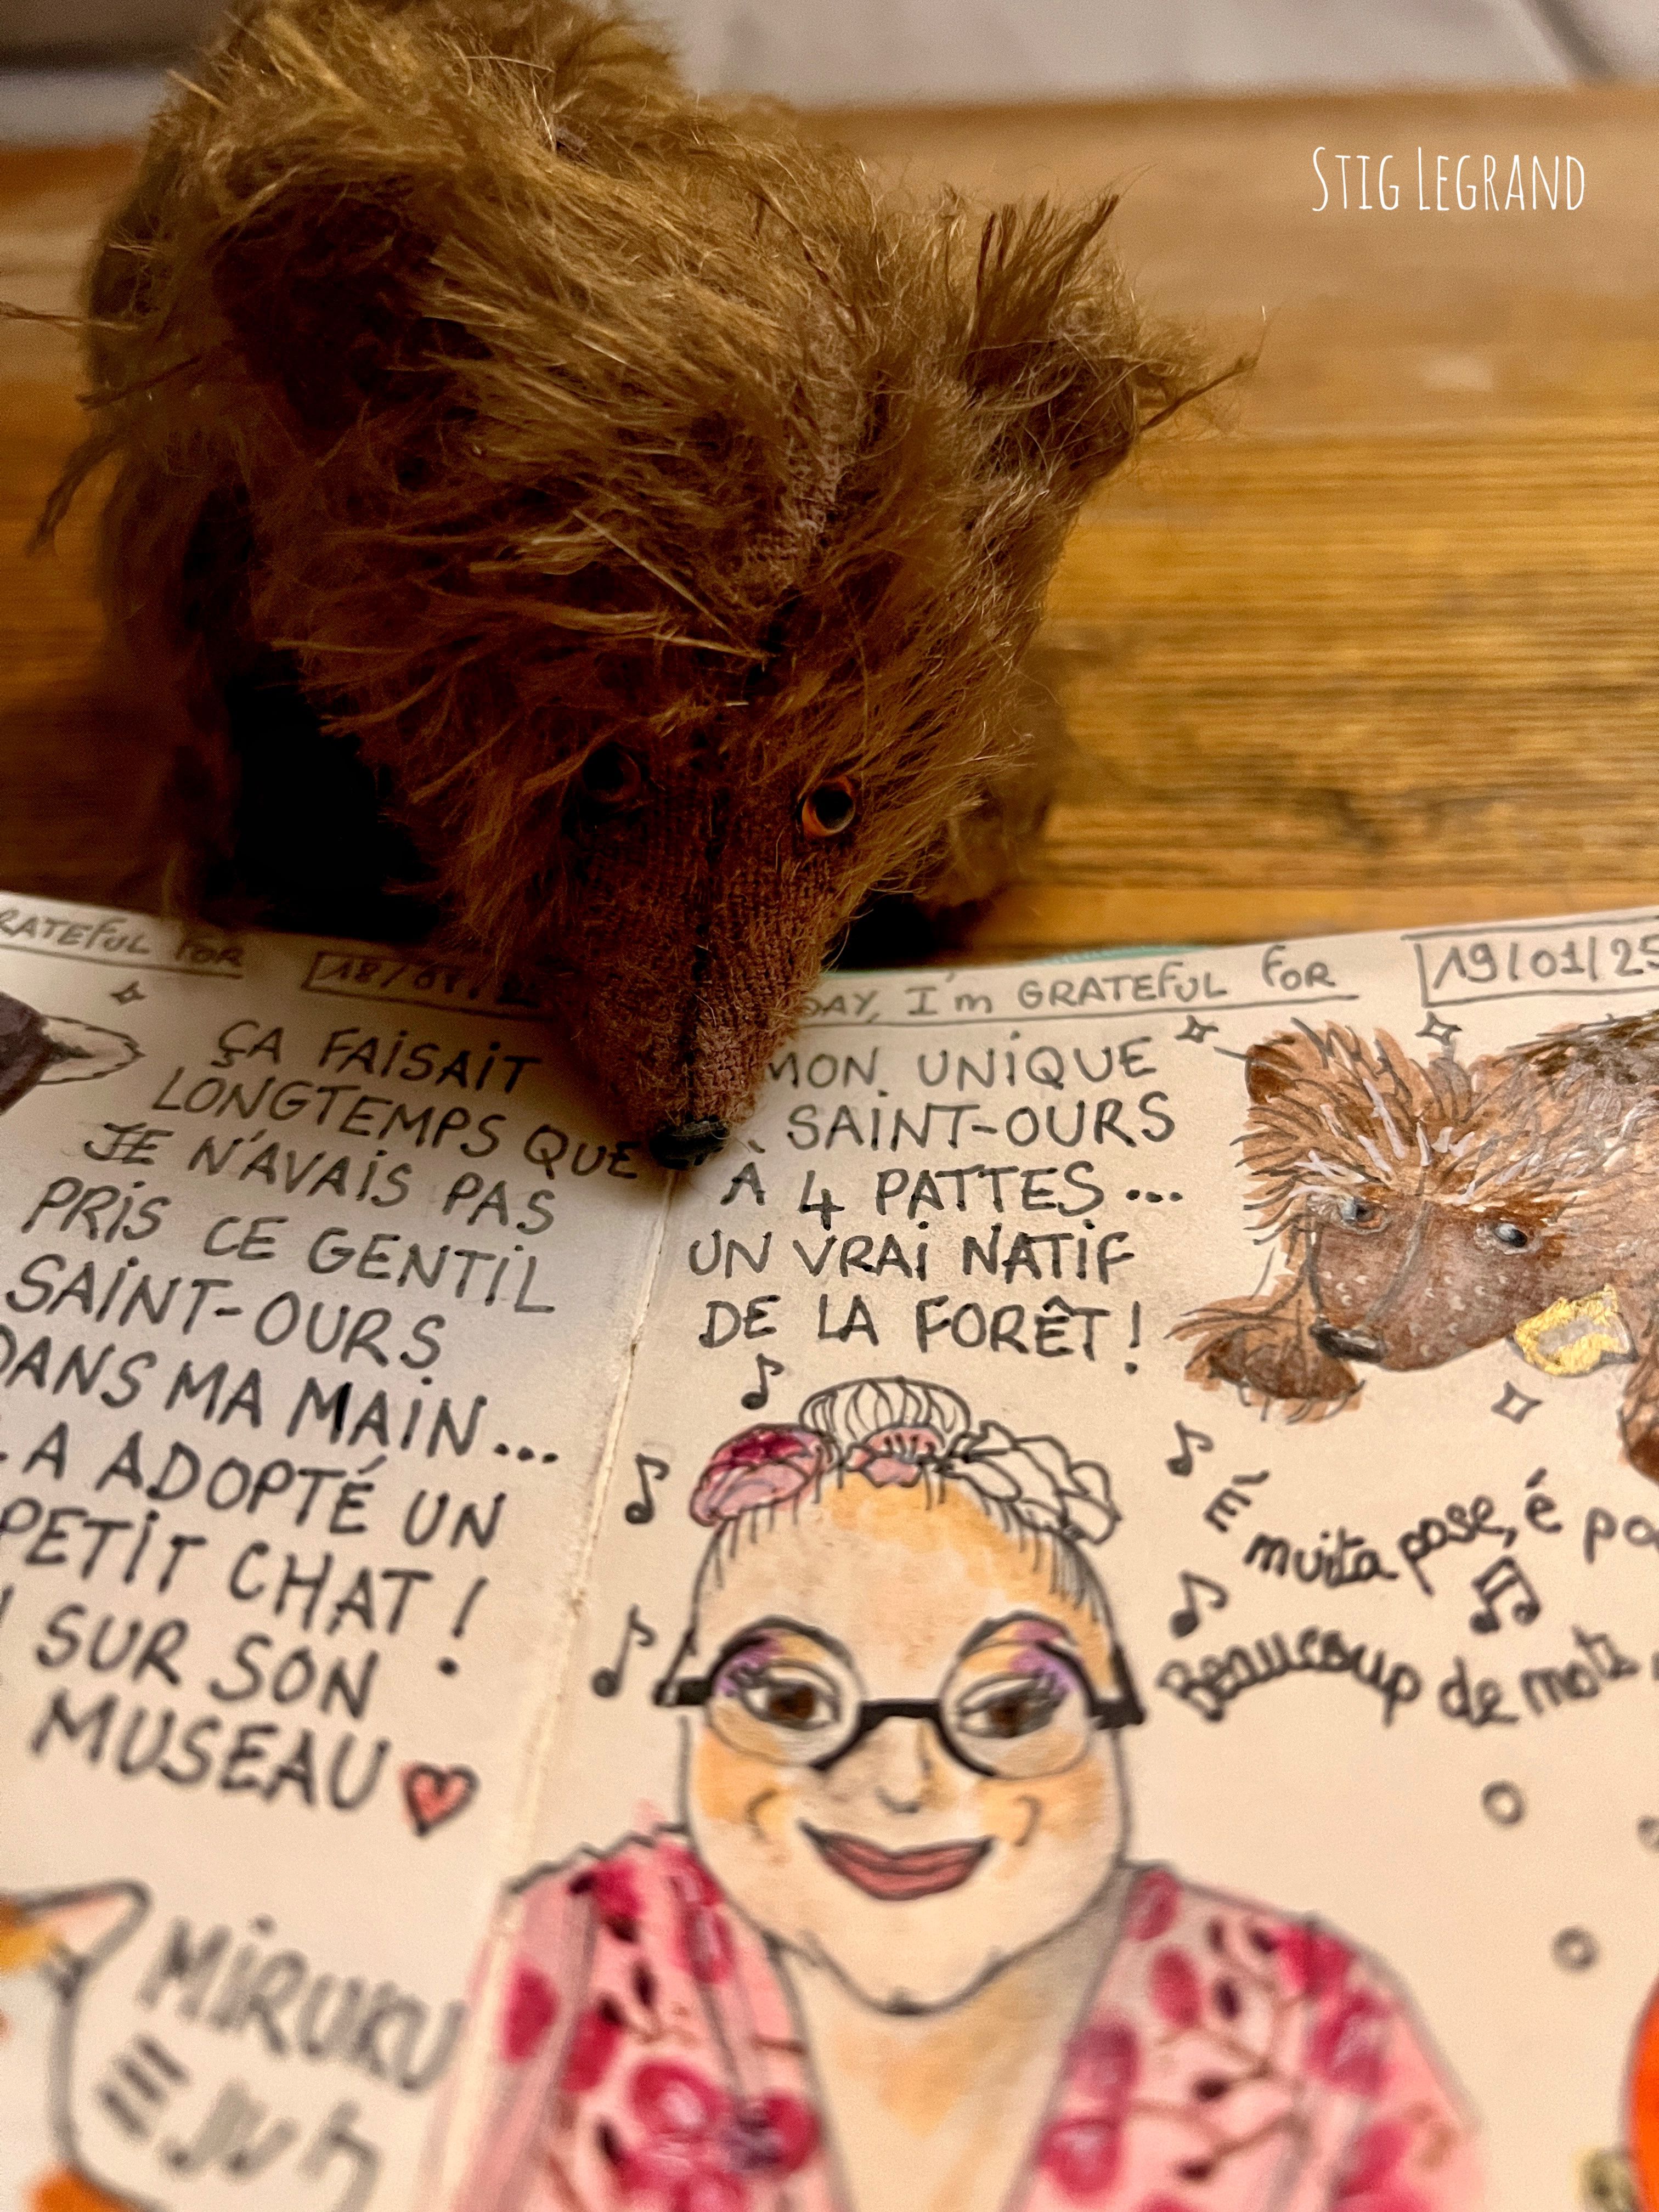 STIG LEGRAND
GRATEFUL FOR
ÇA FAISAIT
LONGTEMPS QUE
JE N'AVAIS PAS
PRIS CE GENTIL
SAINT-OURS
DANS MA MAIN...
A ADOPTÉ UN
PETIT CHAT !
SUR SON
MUSEAU
MIRUKU
ミルク
DAY, I'm GRATEFUL FOR
19/01/25
MON UNIQUE
SAINT-OURS
À 4 PATTES...
UN VRAI NATIF
DE LA FORÊT !
É muita pose, é
Beaucoup de mots